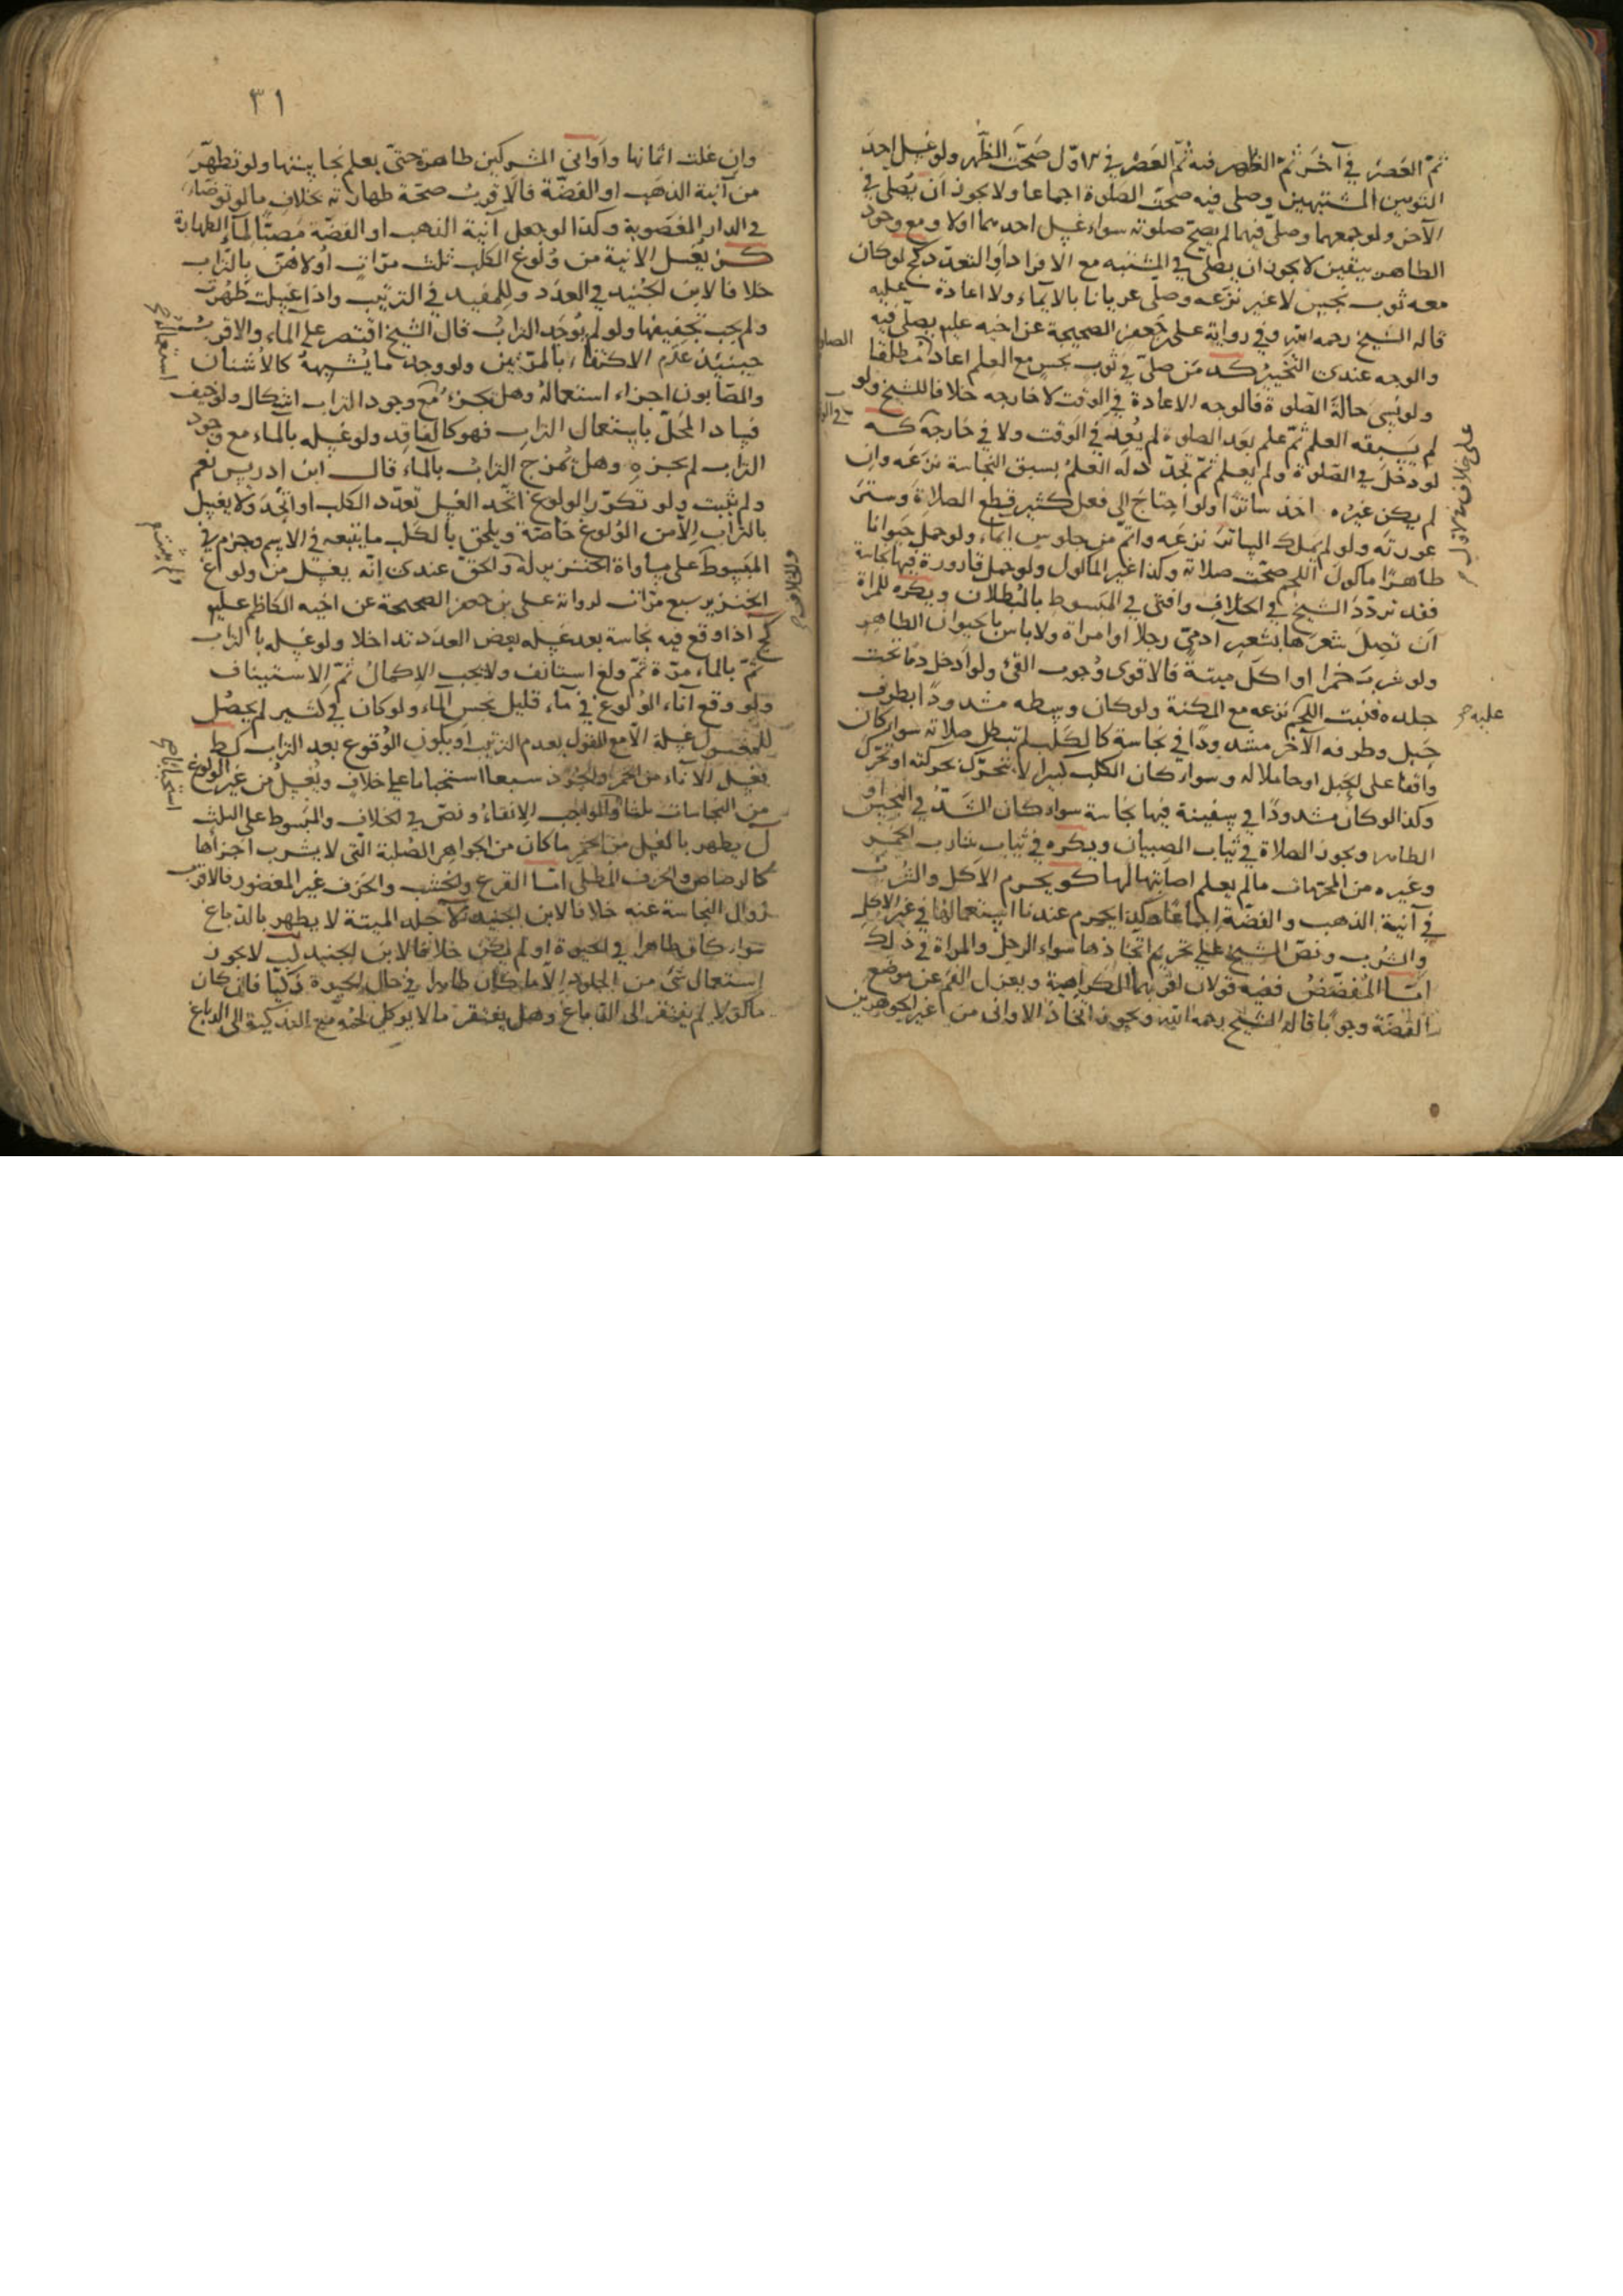 ثمّ العصر في آخر ثمّ الظهر فيه ثمّ العصر في الاوّل صحّت الظهر ولو غسل احد
الثوبين المشتبهين وصلى فيه صحّت الصلوة اجماعا ولا يجوز ان يُصلى في
الآخر ولو جمعهما وصلّى فيهما لم يصحّ صلوته سواء غسل احدهما اولا ومع وجود
الطاهر بيقين لا يجوز ان يصلّى في المشتبه مع الافراد او التعدّد كح لو كان
معه ثوب نجس لا غير نزعه وصلّى عريانا بالايماء ولا اعادة عليه
قاله الشيخ رحمه الله وفي رواية على بن جعفر الصحيحة عن اخيه عليم يصلّى فيه
والوجه عندى التخيير كد من صلّى في ثوب نجس مع العلم اعاد مطلقا
ولو نسى حالة الصلوة فالوجه الاعادة في الوقت لا خارجه خلافا للشيخ ولو
لم يسبقه العلم ثمّ علم بعد الصلوة لم يُعد في الوقت ولا في خارجه كه
لو دخل في الصّلوة ولم يعلم ثمّ تجدّد له العلم بسبق النجاسة نزعه وان
لم يكن غيره اخذ ساترا ولو احتاج الى فعل كثير قطع الصلاة وستر
عورته ولو لم يملك الساتر نزعه واتمّ من جلوس ايماء ولو حمل حيوانا
طاهرًا مأكول اللحم صحّت صلاته وكذا غير المأكول ولو حمل قارورة فيها نجاسة
فقد تردّد الشيخ في الخلاف وافتى في المبسوط بالبطلان ويكره للمرأة
ان تصل شعرها بشعر ادمىّ رجلا او امراة ولا باس بالحيوان الطاهر
ولو شرب خمرا او اكل ميتة فالاقوى وجوب القئ ولو ادخل دمًا تحت
جلده فنبت اللحم نزعه مع المكنة ولو كان وسطه مشدودًا بطرف
حبل وطرفه الآخر مشدودًا في نجاسة كالكلب لم تبطل صلاته سواء كان
واقفا على الحبل او حاملا له وسواء كان الكلب كبيرا لا يتحرّك بحركته او تحرّك
وكذا لو كان مشدودًا في سفينة فيها نجاسة سواء كان الشدّ في النجس او
الطاهر ويجوز الصلاة في ثياب الصبيان ويكره في ثياب شارب الخمر
وغيره من المحرّمات مالم يعلم اصابتها لها كو يحرم الاكل والشرب
في آنية الذهب والفضّة اجماعًا وكذا يحرم عندنا استعمالها في غير الاكل
والشرب ونصّ الشيخ على تحريم اتخاذها سواء الرجل والمراة في ذلك
امّا المفضّض ففيه قولان اقربهما الكراهية ويعزل الفم عن موضع
الفضّة وجوبا قاله الشيخ رحمه الله ويجوز اتخاذ الاوانى من غير الجوهرين
على خلاف الاول
عليه
الصلو
٣١
وان غلت اثمانها واوانى المشركين طاهرة حتّى يعلم نجاستها ولو تطهّر
من آنية الذهب او الفضّة فالاقرب صحّة طهارته بخلاف ما لو توضّأ
في الدار المغصوبة وكذا لو جعل آنية الذهب او الفضّة مصبّا لماء الطهارة
كز يغسل الآنية من ولوغ الكلب ثلث مرّات اولاهنّ بالتراب
خلافا لابن الجنيد في العدد وللمفيد في الترتيب واذا غسلت طهرت
ولم يجب تجفيفها ولو لم يوجد التراب قال الشيخ اقتصر على الماء والاقرب
حينئذ عدم الاكتفاء بالمرّتين ولو وجد ما يشبهه كالاشنان
والصّابون اجزاء استعماله وهل يجزئ مع وجود التراب اشكال ولو خيف
فساد المحلّ باستعمال التراب فهو كالفاقد ولو غسله بالماء مع وجود
التراب لم يجزه وهل يُمزج التراب بالماء قال ابن ادريس نعم
ولم يثبت ولو تكرّر الولوغ اتّحد الغسل تعدّد الكلب او اتّحد ولا يغسل
بالتراب الّا من الولوغ خاصّة ويلحق بالكلب ما يتبعه في الاسم وجزم في
المبسوط على مساواة الخنزير له والحقّ عندى انّه يغسل من ولوغ
الخنزير سبع مرّات لرواية على بن جعفر الصحيحة عن اخيه الكاظم عليم
كح اذا وقع فيه نجاسة بعد غسله بعض العدد تداخلا ولو غسله بالتراب
ثمّ بالماء مرّة ثمّ ولغ استانف ولا يجب الاكمال ثمّ الاستيناف
ولو وقع آناء الولوغ في ماء قليل نجس الماء ولو كان في كثير لم يحصل
للمغسول غسلة الّا مع القول بعدم الترتيب او يكون الوقوع بعد التراب كط
يغسل الآناء من الخمر والجرذ سبعا استحبابا على خلاف ويُغسل من غير الولوغ
من النجاسات ثلثا والواجب الانقاء ونصّ في الخلاف والمبسوط على الثلث
ل يطهر بالغسل من الخمر ما كان من الجواهر الصلبة التى لا يشرب اجزأها
كالرصاص والخزف المطلى امّا القرع والخشب والخزف غير المغضور فالاقرب
زوال النجاسة عنه خلافا لابن الجنيد لا جلد الميتة لا يطهر بالدّباغ
سواء كان طاهرا في الحيوة او لم يكن خلافا لابن الجنيد لب لا يجوز
استعمال شئ من الجلود الّا ما كان طاهرا في حال الحيوة ذكيّا فان كان
مأكولا لم يفتقر الى الدّباغ وهل يفتقر ما لا يوكل لحمه مع التذكية الى الدباغ
استعماله
استحبابا
والخلاف